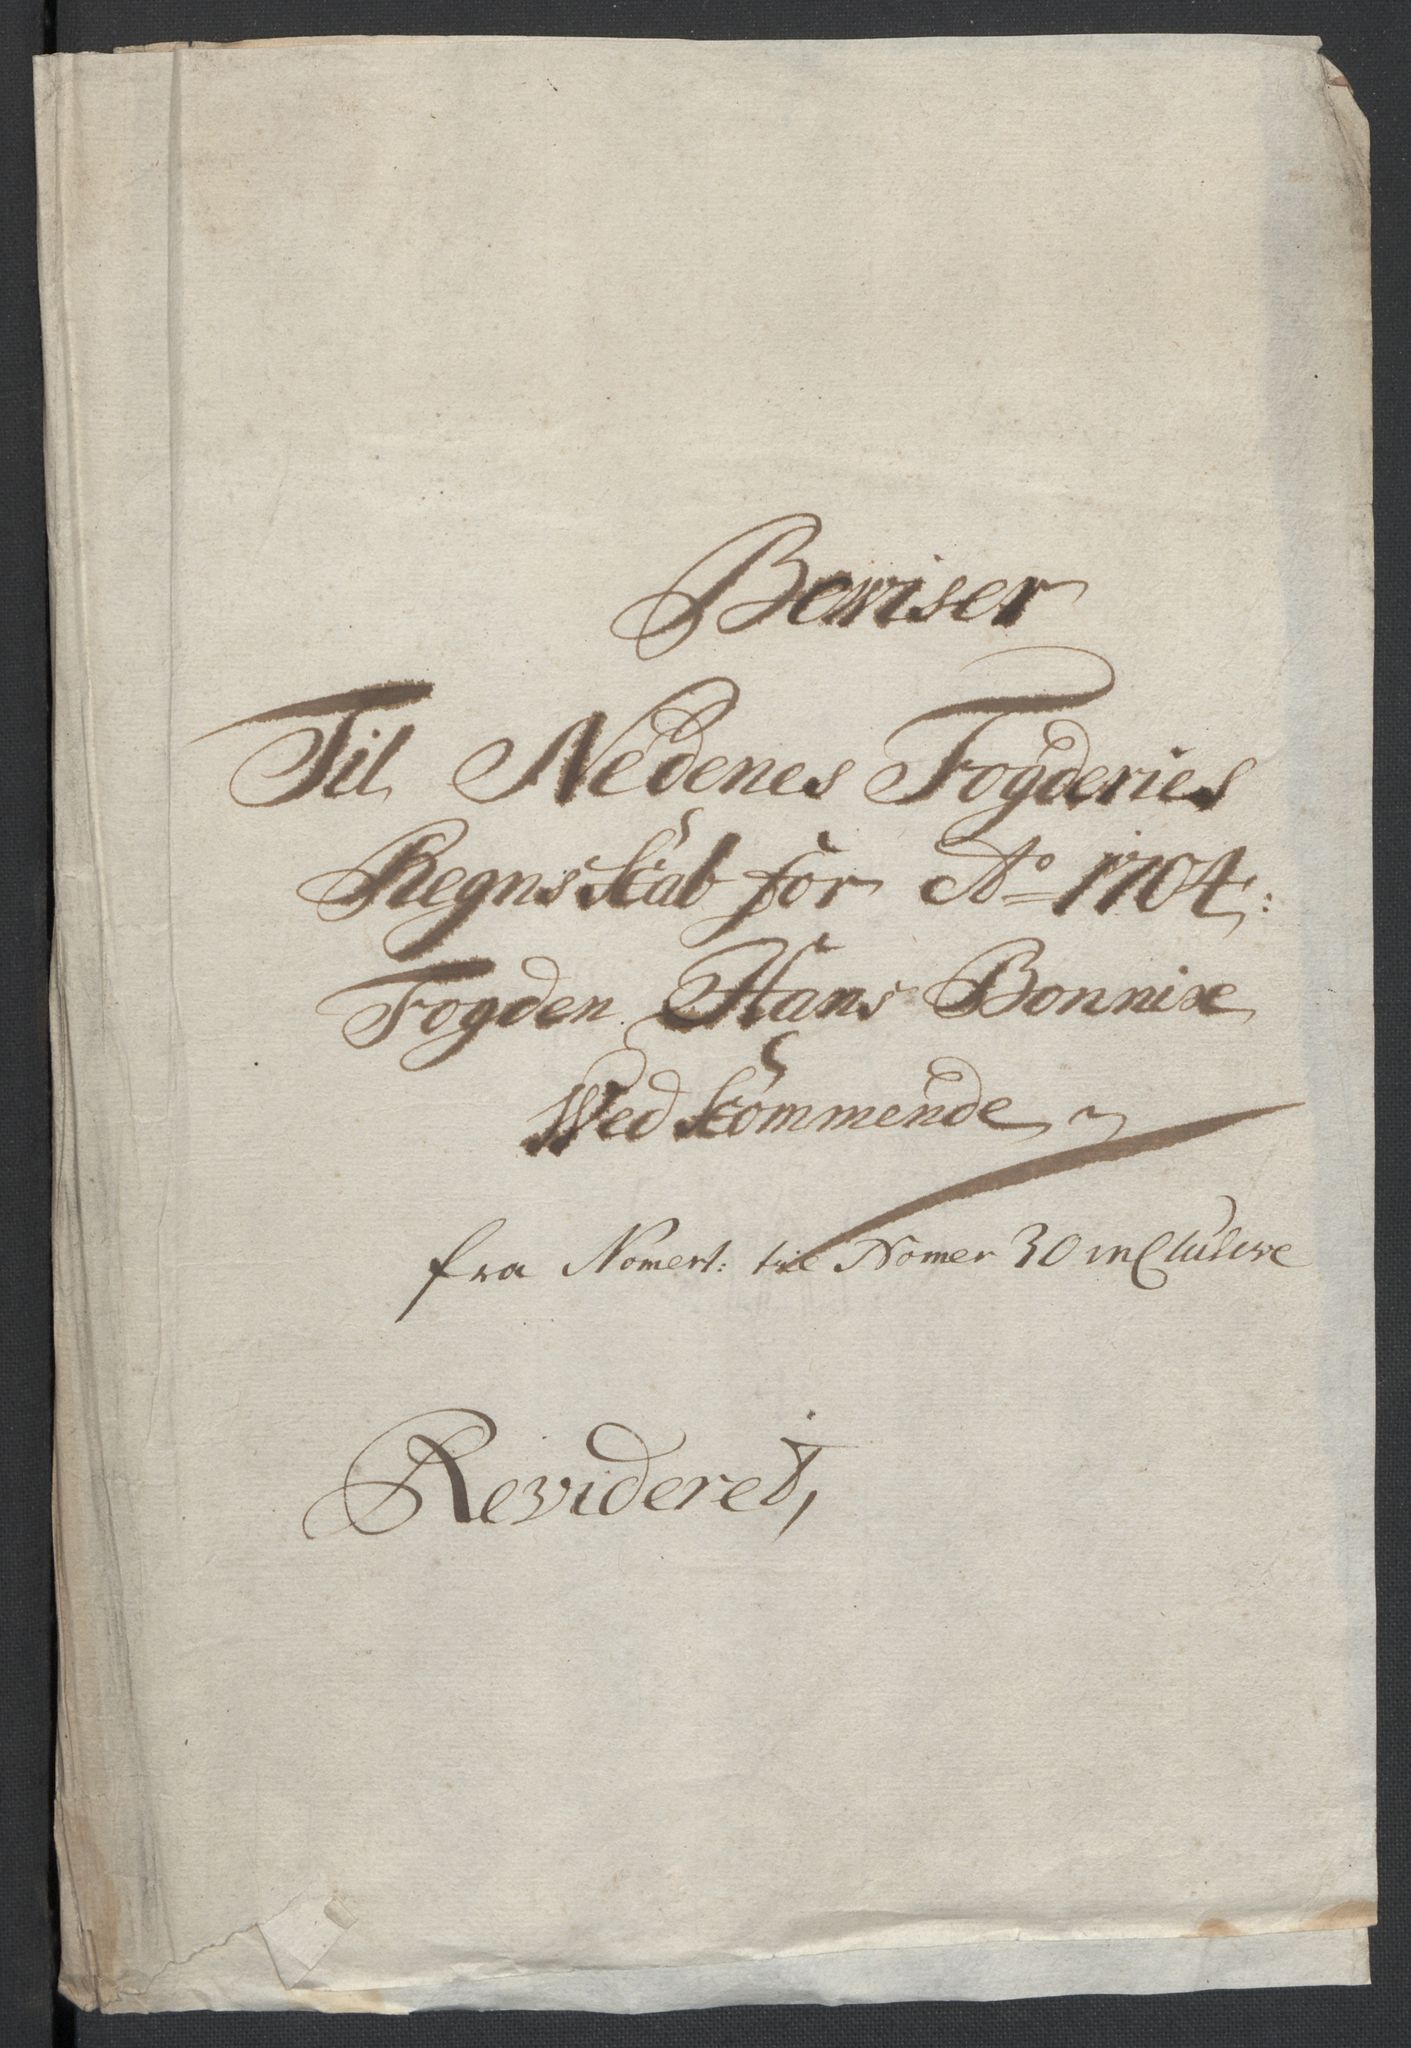 Bewiser
Til Nedenes Fogderies
Regnskab for Ao 1704:
Fogden Hans Bonnix
Wedkommende
fra Nomer 1: til Nomer 30 inClusive
Revideret,